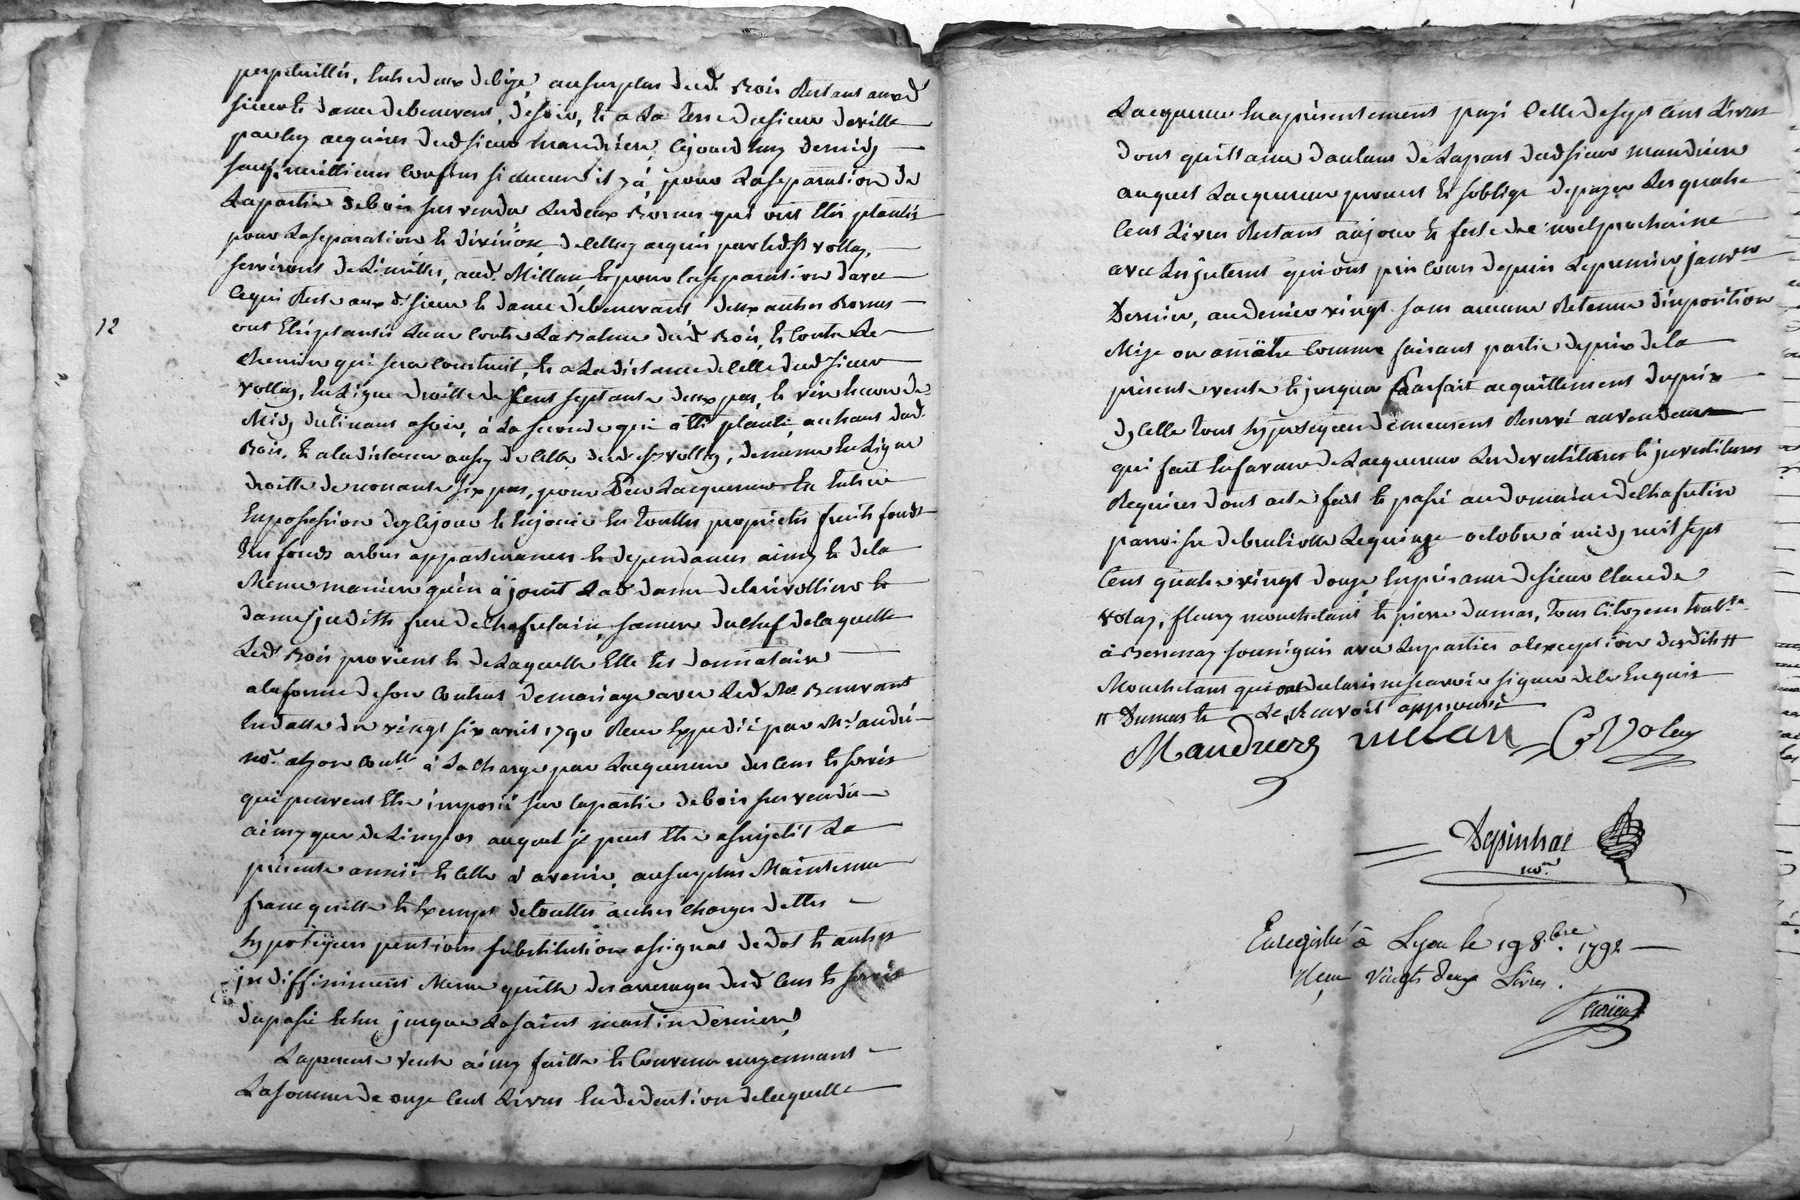 perpetuittés, entre deux de bize, au surplus dud. Bois restant auxd
sieur et dame de benevant, de soir, et a la terre du sieur deville
par luy acquise dud sieur mandiere, cejourd huy de midy
sauf meillieurs confins si aucun il y à, pour la separation de
la partie de bois sus vendu les deux Bornes qui ont étés plantés
pour la separation et division de celluy acquis par led. Sr vollay,
serviront de Limittes, aud. Millan, et pour la separation d'avec
ce qui reste aux d. sieur et dame de benevant deux autres Bornes
ont été plantés Lune contre La Balme dud. Bois, et contre Le
12
chemin qui sera construit, et a la distance de celle dud sieur
vollay, en Ligne droitte de cent septante deux pas,
Midy declinant a soir, a la seconde qui a été planté, au haut dud
Bois, et a la distance aussy de celle dud. Sr vollay, de meme en Ligne
droitte de nonante six pas, pour Par Lacquereur En Entrer
En possession des ce jour et En jouir En touttes proprietés fruits fonds
tres fonds arbres appartenances et dependances ainsy et de la
Meme maniere qu'en à jouit Lad. dame delarivolliere et
dame judith frere de chafutain, sa mere du chef de laquelle
Led. Bois provient et de Laquelle Elle Est donnataire
a la forme de son contrat de mariage avec Led. Mr. Benevant
En datte du vingt six avril 1790 Reçu Expedié par Me. andré
nore. a lyon Conlle. à La charge par Lacquereur des cens et servis
qui peuvent Etre imposés sur la partie de bois sus vendu
ainsy que de Limpos auquel il peut Etre assujetit La
présente année et celle a avenir, au surplus Maintenue
franc quitte et Exempt de touttes autres charges dettes
hypoteques pentions substitution assignat de dot et autres
indiffiniment Meme quitte des arrerages dud. cens et servis
du passé Echu jusqua La saint martin derniere
La presente vente ainsy faitte et convenue moyennant
La somme de onze cent Livres En deduction de laquelle
Lacquereur En a présentement payé Celle de sept cent Livres
dont quittance d'autant de La part dud sieur mandiere
auquel Lacquereur promet et soblige de payer Les quatre
cent Livres Restant au jour et feste de noel prochaine
avec Les interest qui ont pris cours depuis Le premier janver
Dernier, au denier vingt sans aucune Retenue d'imposition
Mise ou amätre Comme faisant partie du prix de la
présente vente et jusquau Parfait acquittement du prix
d'icelle tous hypoteques demeurent Reservé au vendeur
qui fait En faveur de Lacquereur Les devestitures et investitures
Requises dont acte fait et passé au domaine de chafutin
parroisse de brulliolle Le quinze octobre à midy mil sept
Cent quatre vingt douze En présance de sieur Claude
volay, fleury mouchetant, et pierre dumas, tous Citoyens habts.
à Bessenay soussignés avec Les parties a lexception desdits #
Mouchetant qui ont declarés ne scavoir signer de ce Enquis
# Dumas et Le Renvoit approuvé
Mandiere milan C. Volay
Depinhac
nore.
Enregistré à Lyon le 19 8.bre 1792
Reçu vingt deux Livres.